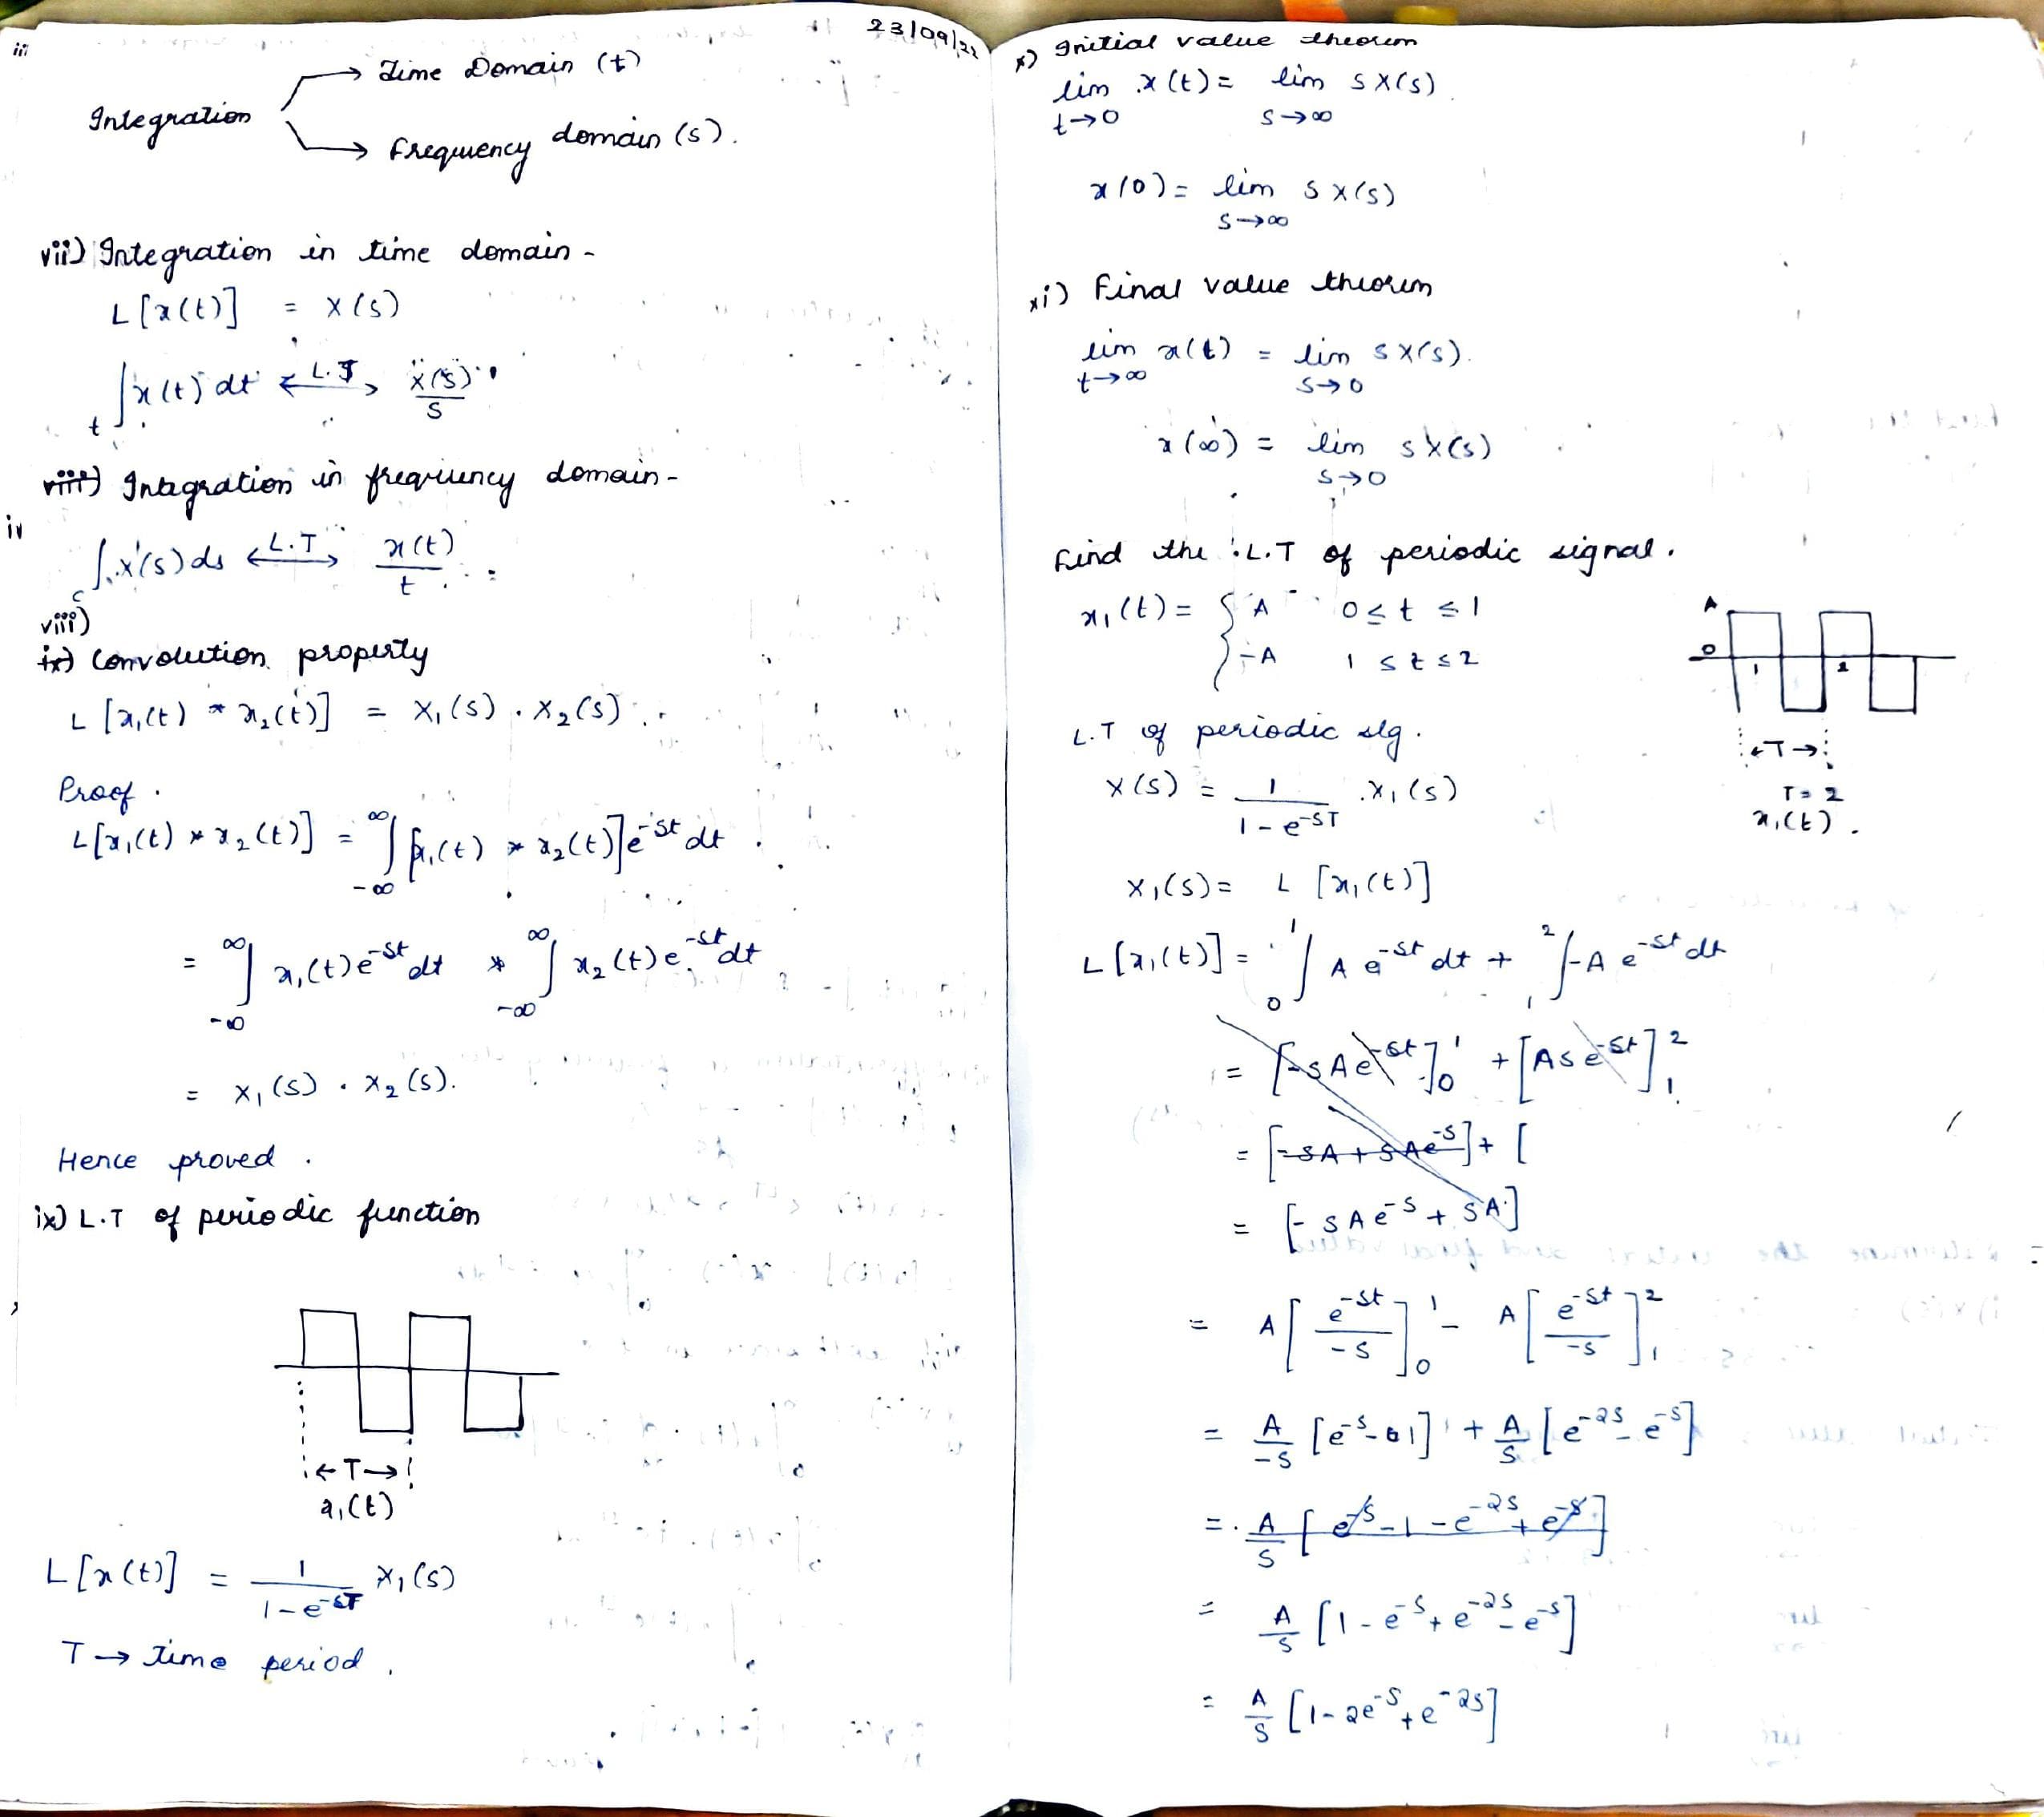 23/09/22
iii
Integration → Time Domain (t)
→ Frequency domain (s).
vii) Integration in time domain -
L[x(t)] = X(s)
∫x(t) dt ←L.T→ X(s)/s
t
viii) Integration in frequency domain-
iv
∫X(s) ds ←L.T→ x(t)/t
viii)
ix) Convolution property
L[x₁(t) * x₂(t)] = X₁(s) . X₂(s)
Proof.
L[x₁(t) * x₂(t)] = ∫_{-∞}^{∞} [x₁(t) * x₂(t)] e^{-st} dt
= ∫_{-∞}^{∞} x₁(t) e^{-st} dt * ∫_{-∞}^{∞} x₂(t) e^{-st} dt
= X₁(s) . X₂(s).
Hence proved.
ix) L.T of periodic function
←T→
x₁(t)
L[x(t)] = 1/(1-e^{-sT}) X₁(s)
T → Time period.
x) Initial value theorem
lim_{t→0} x(t) = lim_{s→∞} sX(s).
x(0) = lim_{s→∞} sX(s)
xi) Final value theorem
lim_{t→∞} x(t) = lim_{s→0} sX(s).
x(∞) = lim_{s→0} sX(s)
Find the L.T of periodic signal.
x₁(t) = { A 0 ≤ t ≤ 1
-A 1 ≤ t ≤ 2
A
0 1 2
←T→
T = 2
x₁(t).
L.T of periodic sig.
X(s) = 1/(1-e^{-sT}) . X₁(s)
X₁(s) = L[x₁(t)]
L[x₁(t)] = ∫_0^1 A e^{-st} dt + ∫_1^2 -A e^{-st} dt
= [-sAe^{-st}]_0^1 + [Ase^{-st}]_1^2
= [-sA + sAe^{-s}] + [
= [-sAe^{-s} + sA]
= A[e^{-st}/-s]_0^1 - A[e^{-st}/-s]_1^2
= A/-s [e^{-s} - 1] + A/s [e^{-2s} - e^{-s}]
= A/s [e^{-s} - 1 - e^{-2s} + e^{-s}]
= A/s [1 - e^{-s} + e^{-2s} - e^{-s}]
= A/s [1 - 2e^{-s} + e^{-2s}]